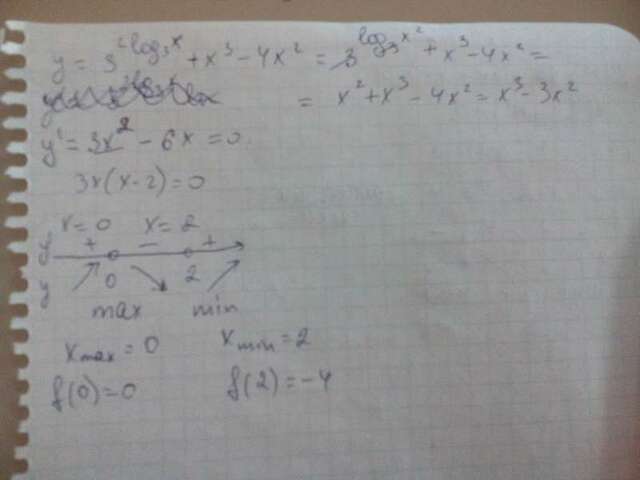 y = 3^{2 log_3 x} + x^3 - 4x^2 = 3^{log_3 x^2} + x^3 - 4x^2 =
= x^2 + x^3 - 4x^2 = x^3 - 3x^2
y' = 3x^2 - 6x = 0
3x(x-2) = 0
x = 0 x = 2
y' + - +
0 2
y
max min
x_{max} = 0 x_{min} = 2
f(0) = 0 f(2) = -4